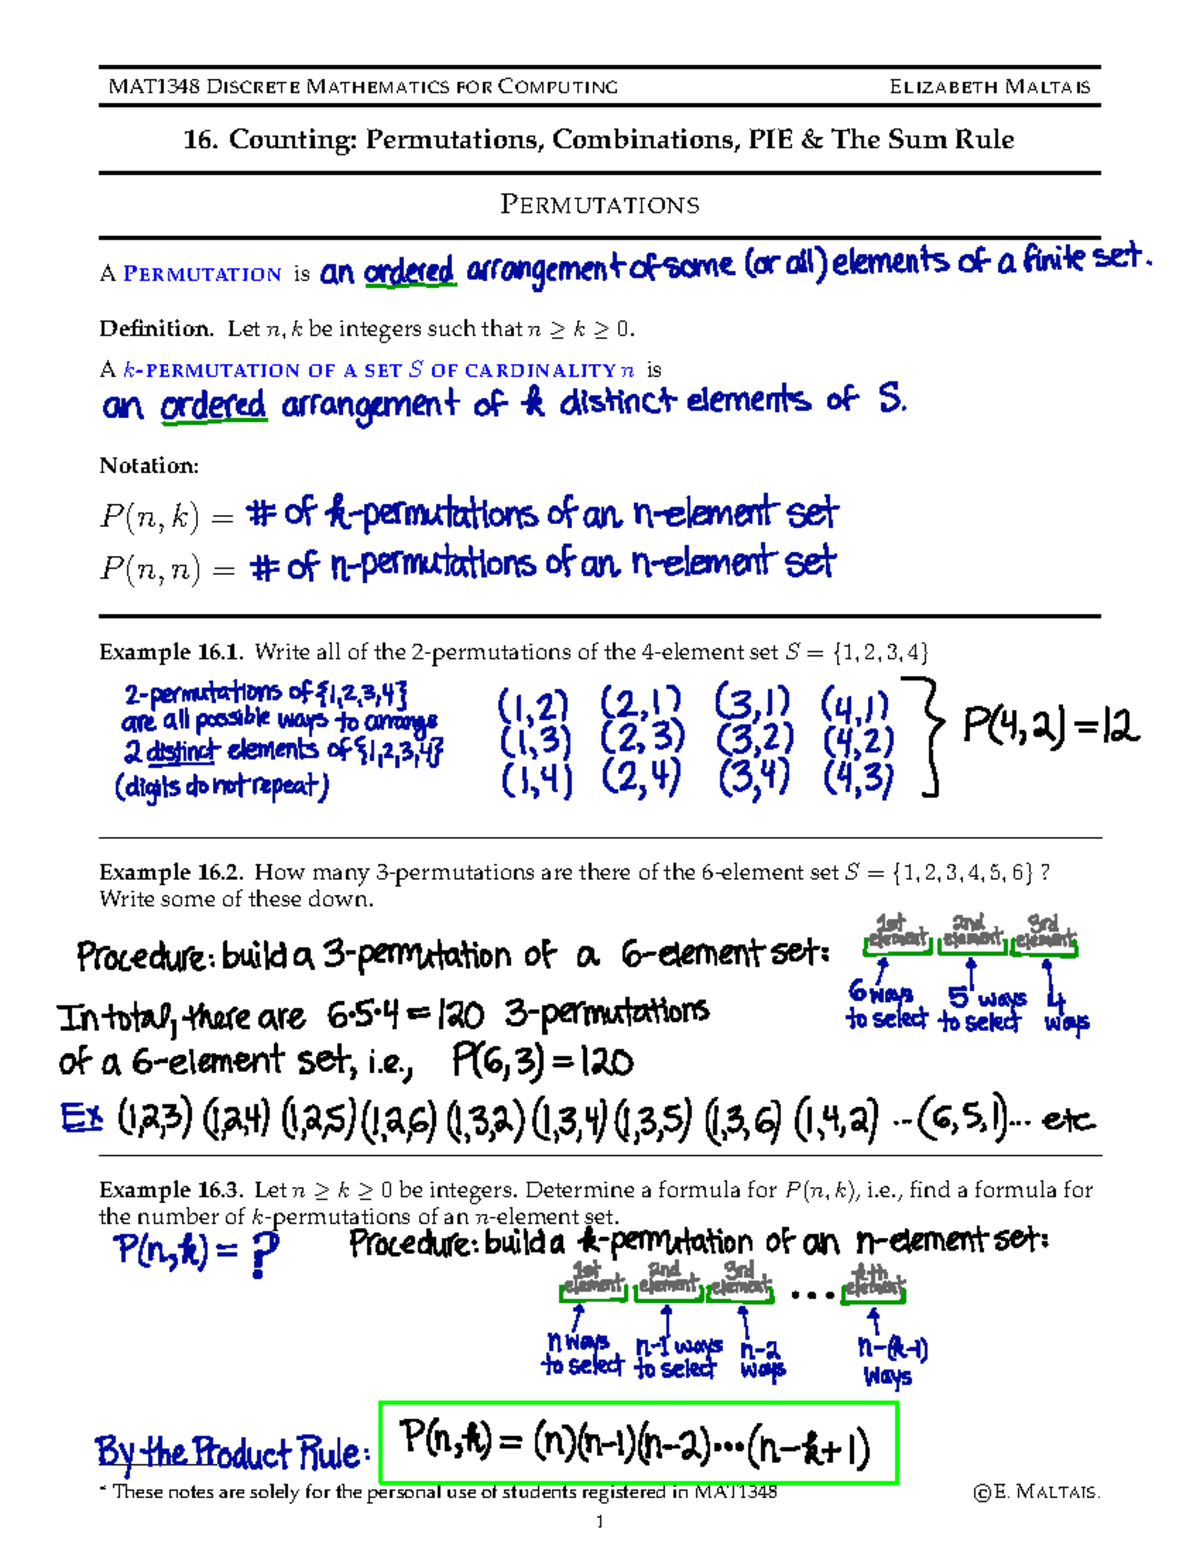 MAT1348 DISCRETE MATHEMATICS FOR COMPUTING ELIZABETH MALTAIS
16. Counting: Permutations, Combinations, PIE & The Sum Rule
PERMUTATIONS
A PERMUTATION is an ordered arrangement of some (or all) elements of a finite set.
Definition. Let n, k be integers such that n ≥ k ≥ 0.
A k-PERMUTATION OF A SET S OF CARDINALITY n is
an ordered arrangement of k distinct elements of S.
Notation:
P(n, k) = # of k-permutations of an n-element set
P(n, n) = # of n-permutations of an n-element set
Example 16.1. Write all of the 2-permutations of the 4-element set S = {1, 2, 3, 4}
2-permutations of {1,2,3,4}
are all possible ways to arrange
2 distinct elements of {1,2,3,4}
(digits do not repeat)
(1,2) (2,1) (3,1) (4,1)
(1,3) (2,3) (3,2) (4,2)
(1,4) (2,4) (3,4) (4,3)
P(4,2)=12
Example 16.2. How many 3-permutations are there of the 6-element set S = {1, 2, 3, 4, 5, 6} ?
Write some of these down.
Procedure: build a 3-permutation of a 6-element set:
1st element 2nd element 3rd element
6 ways to select 5 ways to select 4 ways
In total, there are 6·5·4=120 3-permutations
of a 6-element set, i.e., P(6,3)=120
Ex (1,2,3) (1,2,4) (1,2,5) (1,2,6) (1,3,2) (1,3,4) (1,3,5) (1,3,6) (1,4,2) ··· (6,5,1)··· etc
Example 16.3. Let n ≥ k ≥ 0 be integers. Determine a formula for P(n, k), i.e., find a formula for
the number of k-permutations of an n-element set.
P(n,k) = ?
Procedure: build a k-permutation of an n-element set:
1st element 2nd element 3rd element ... k-th element
n ways to select n-1 ways to select n-2 ways n-(k-1) ways
By the Product Rule: P(n,k) = (n)(n-1)(n-2)···(n-k+1)
* These notes are solely for the personal use of students registered in MAT1348 ©E. MALTAIS.
1